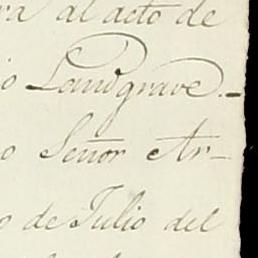 ra al acto de
o Landgrave.—
o Señor Ar-
o de Julio del